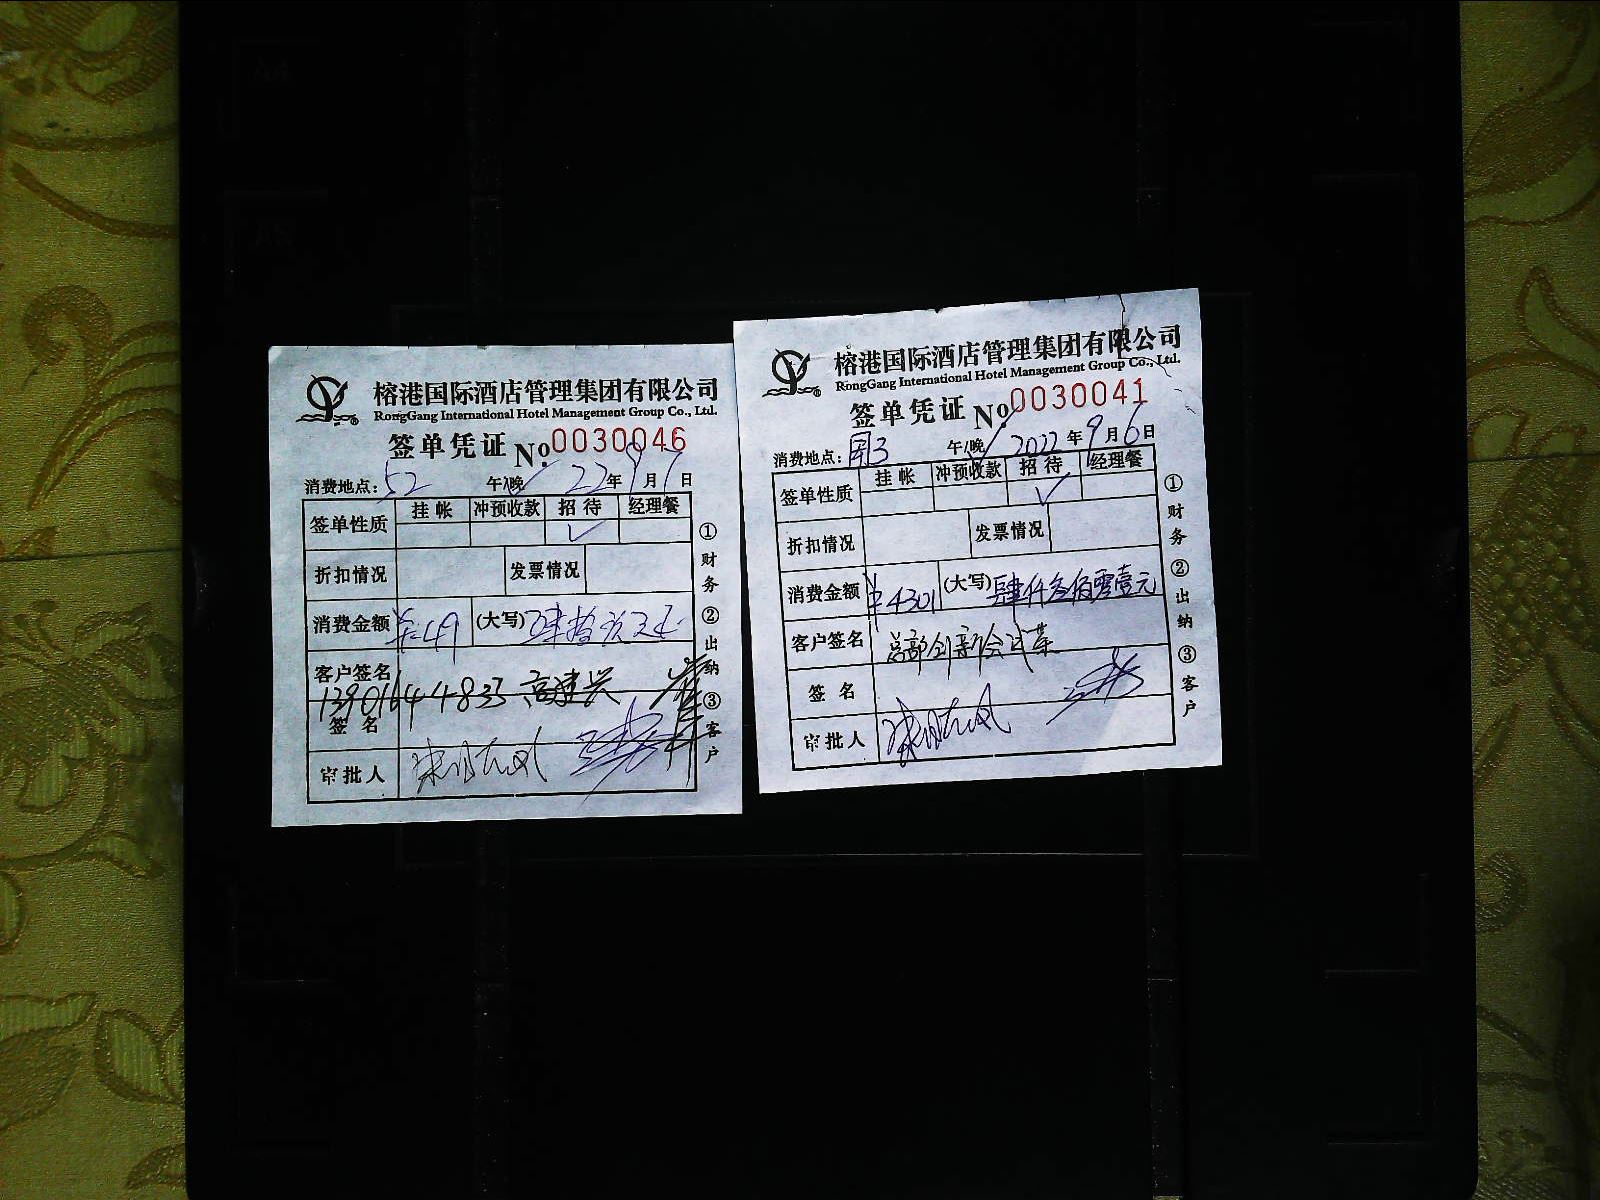 榕港国际酒店管理集团有限公司
RongGang International Hotel Management Group Co., Ltd.
签单凭证 No.0030046
消费地点：52 午/晚 22年9月7日
签单性质 挂帐 冲预收款 招待 经理餐
✓
折扣情况 发票情况
消费金额 ¥:49 (大写) 肆拾玖元正
客户签名
13901644833 高建兴
签 名
审批人
①财务 ②出纳 ③客户
榕港国际酒店管理集团有限公司
RongGang International Hotel Management Group Co., Ltd.
签单凭证 No.0030041
消费地点： 午/晚 2022年9月6日
签单性质 挂帐 冲预收款 招待 经理餐
✓
折扣情况 发票情况
消费金额 ¥4301 (大写) 肆仟叁佰零壹元
客户签名 总部创新会试菜
签 名
审批人
①财务 ②出纳 ③客户